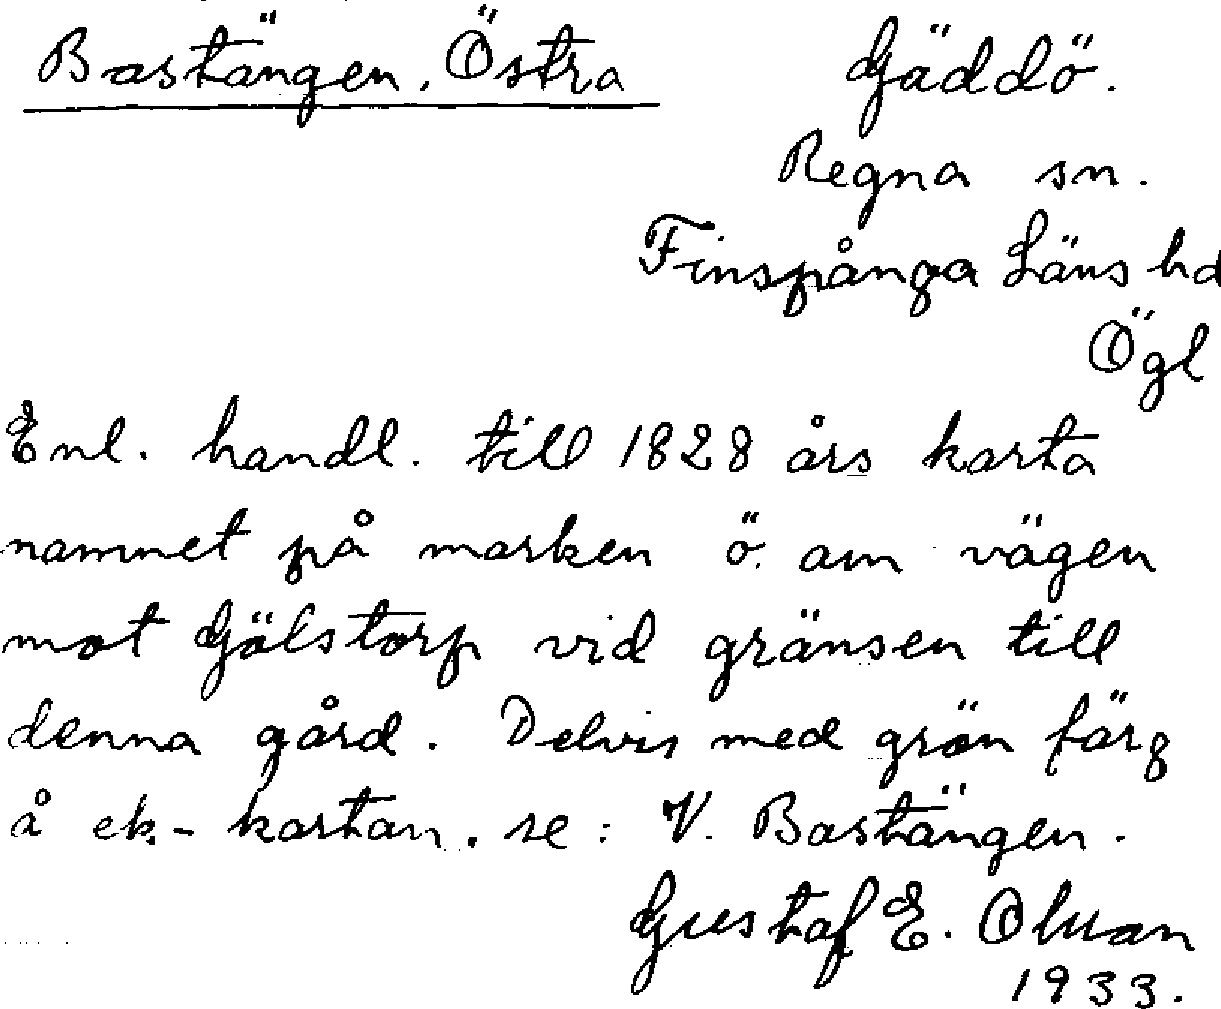 Bastängen, Östra
Gäddö.
Regna sn.
Finspånga Läns hd
Ögl
Enl. handl. till 1828 års karta
namnet på marken ö. om vägen
mot Gölstorp vid gränsen till
denna gård. Delvis med grön färg
å ek.-kartan. se: V. Bastängen.
Gustaf E. Olsson
1933.